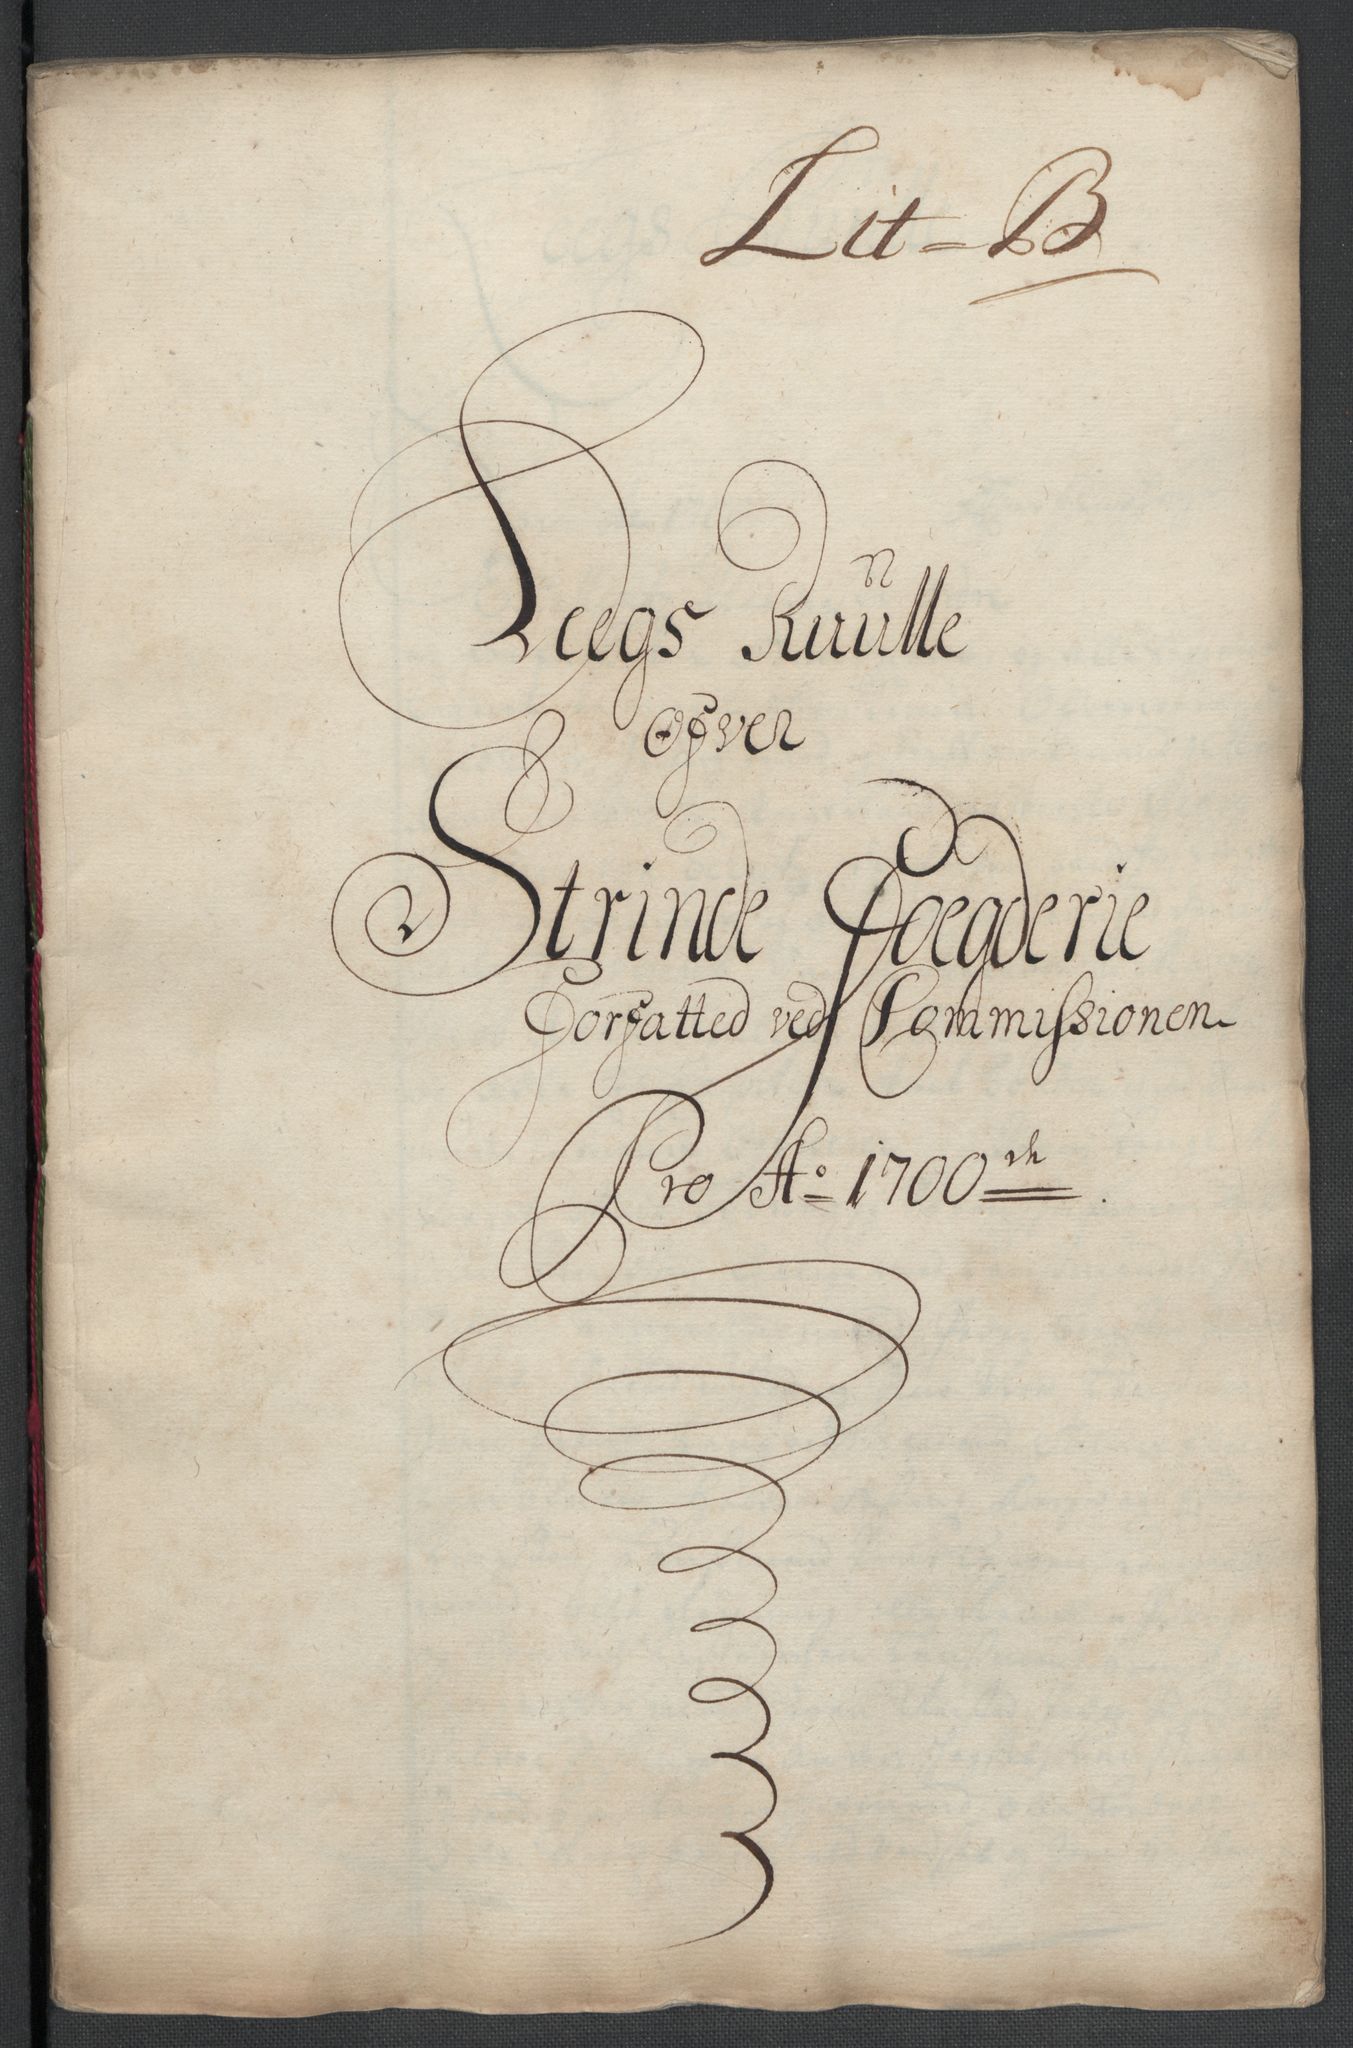 Lit=B
Leegs Ruulle
ofver
Strinde Foegderie
Forfatted ved Commissionen
Pro Aº 1700